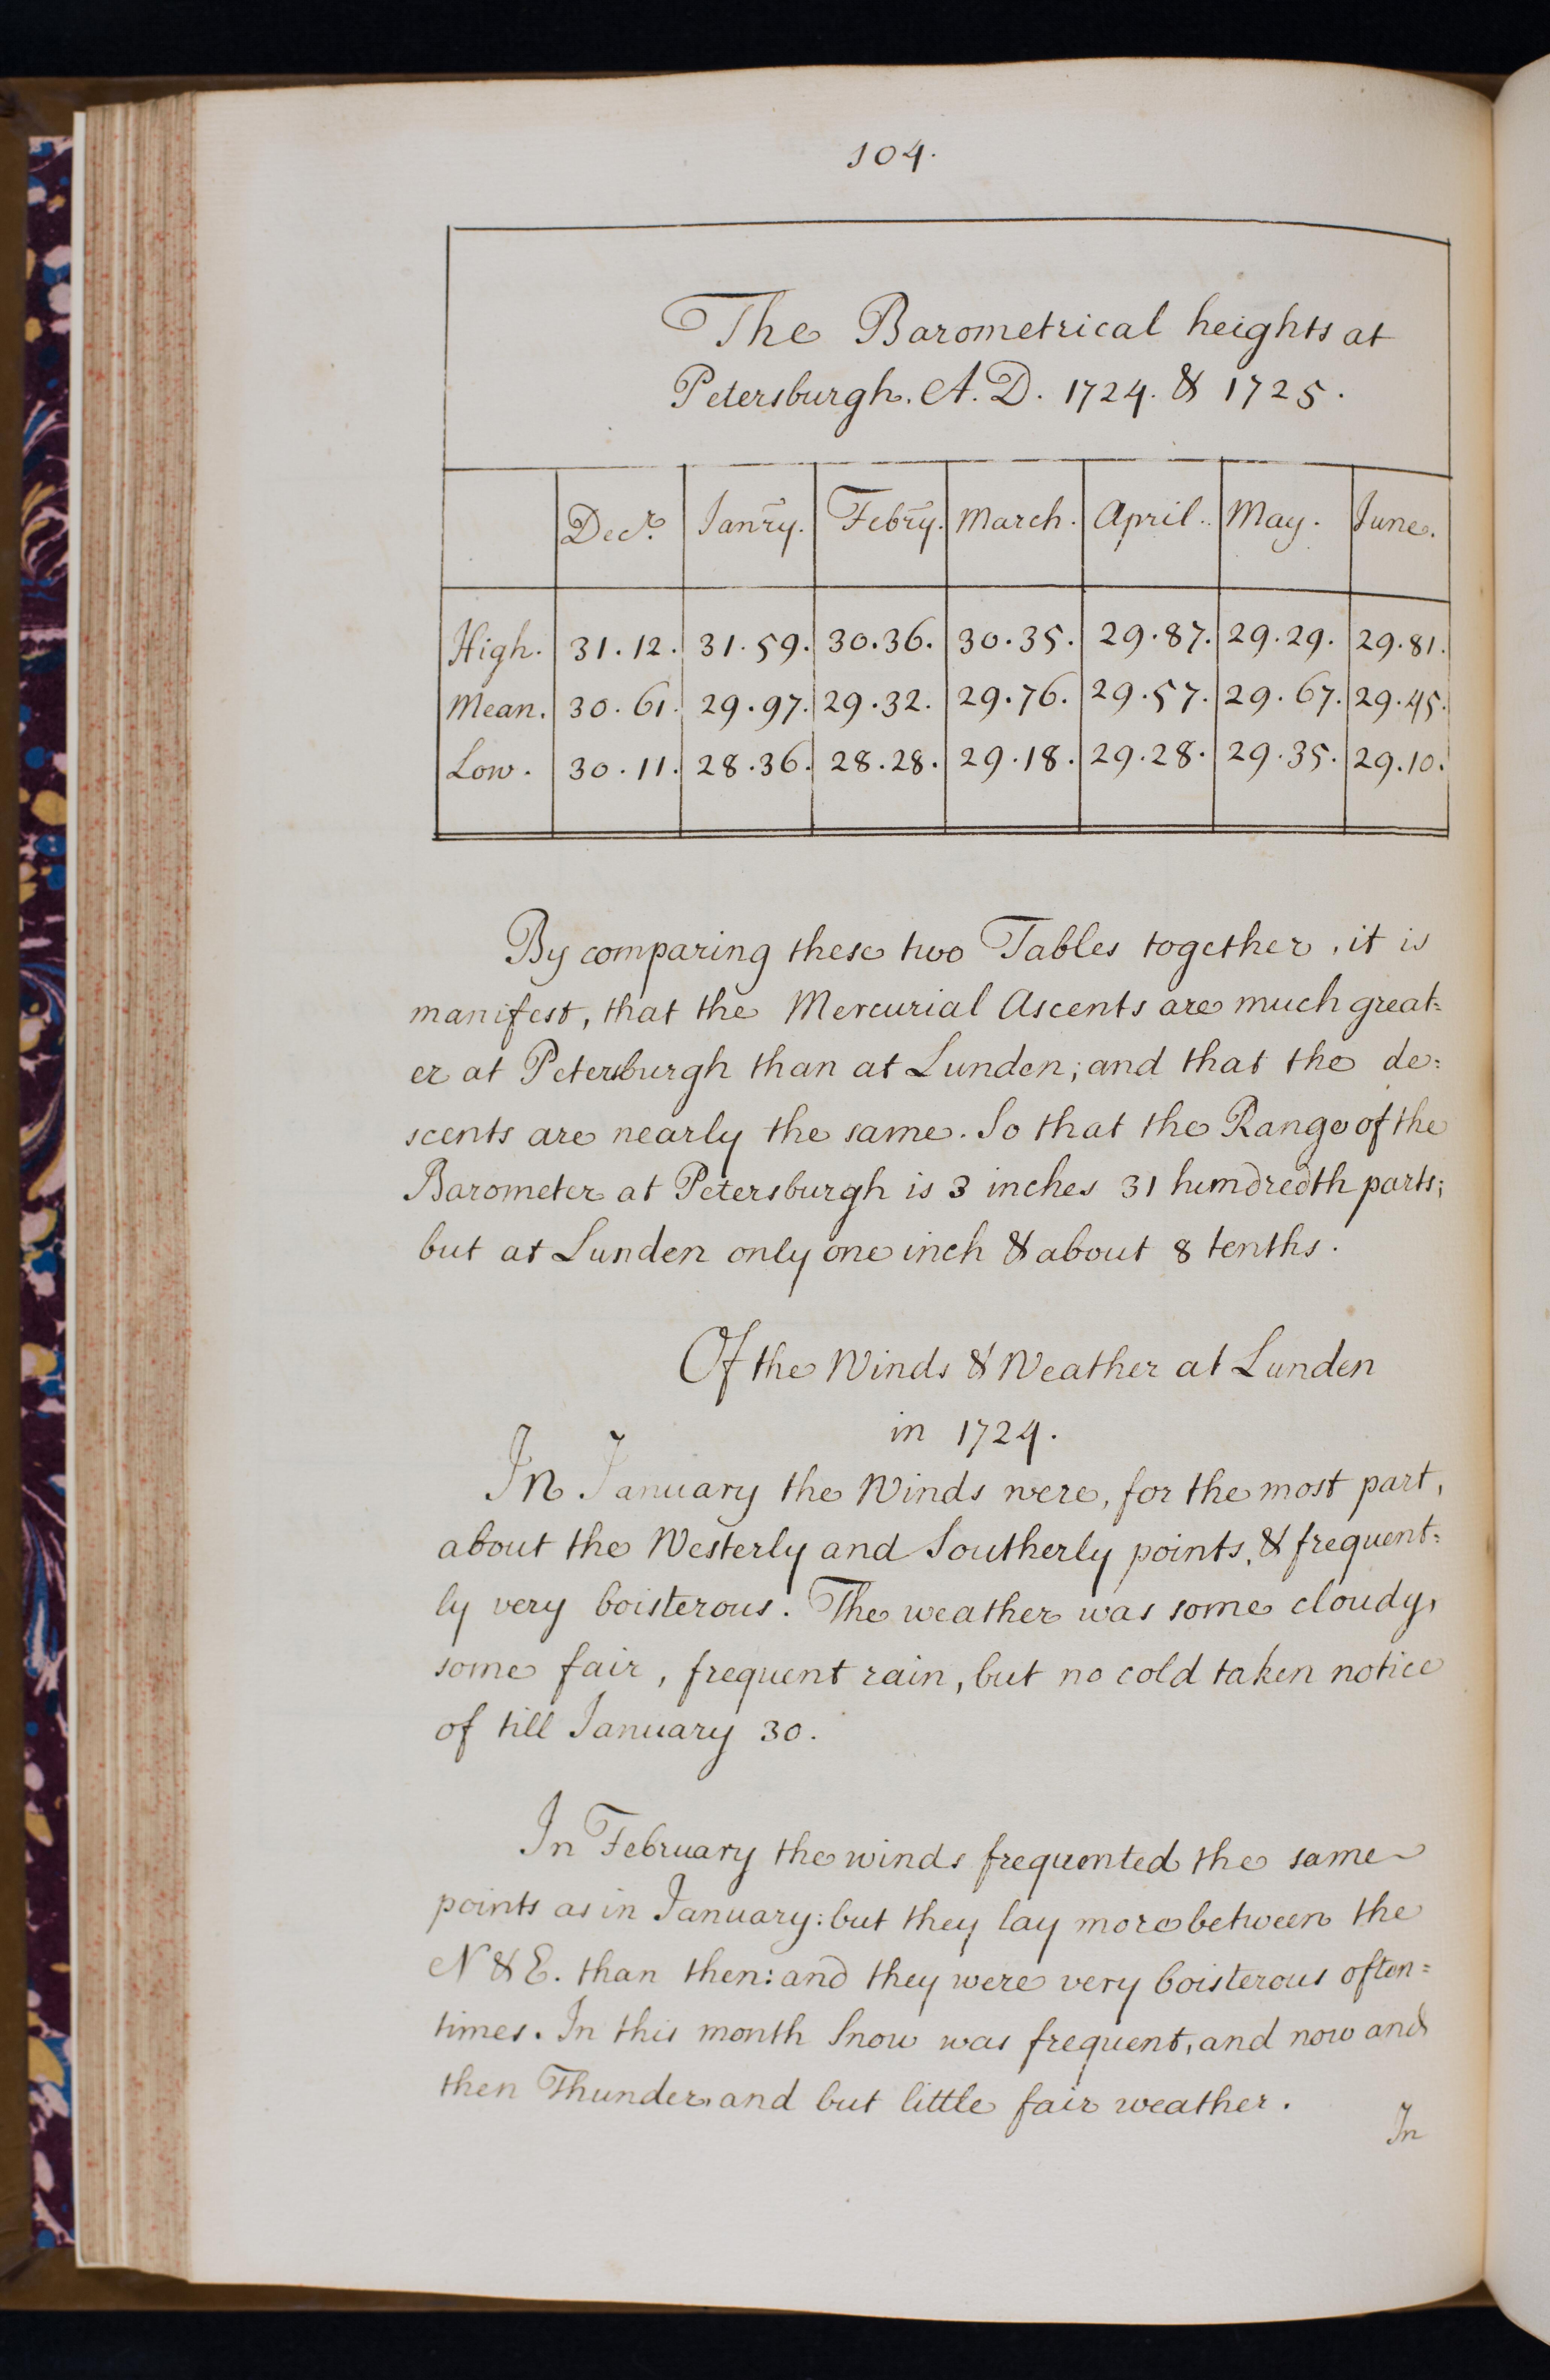 104.
The Barometrical heights at
Petersburgh. A. D. 1724. & 1725.
Decr. Janry. Febry. March. April. May. June.
High. 31.12. 31.59. 30.36. 30.35. 29.87. 29.29. 29.81.
Mean. 30.61. 29.97. 29.32. 29.76. 29.57. 29.67. 29.45.
Low. 30.11. 28.36. 28.28. 29.18. 29.28. 29.35. 29.10.
By comparing these two Tables together, it is
manifest, that the Mercurial Ascents are much great=
er at Petersburgh than at Lunden; and that the de=
scents are nearly the same. So that the Range of the
Barometer at Petersburgh is 3 inches 31 hundredth parts;
but at Lunden only one inch & about 8 tenths.
Of the Winds & Weather at Lunden
in 1724.
In January the Winds were, for the most part,
about the Westerly and Southerly points, & frequent=
ly very boisterous. The weather was some cloudy,
some fair, frequent rain, but no cold taken notice
of till January 30.
In February the winds frequented the same
points as in January: but they lay more between the
N & E. than then: and they were very boisterous often=
times. In this month Snow was frequent, and now and
then Thunder, and but little fair weather.
In